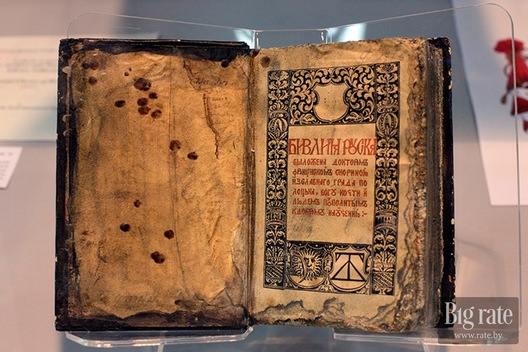 БИВЛИꙖ РУСКА
ВЫЛОЖЕНА ДОКТОРОМЪ
ФРАНЦИСКОМЪ СКОРИНОЮ
ИЗСЛАВНАГО ГРАДА ПО
ЛОЦЬКА, БОГУ КОЧТИ И
ЛЮДЕМЪ ПОСПОЛИТЫМЪ
КДОБРОМУ НАУЧЕНИЮ :·
Big rate
www.rate.by